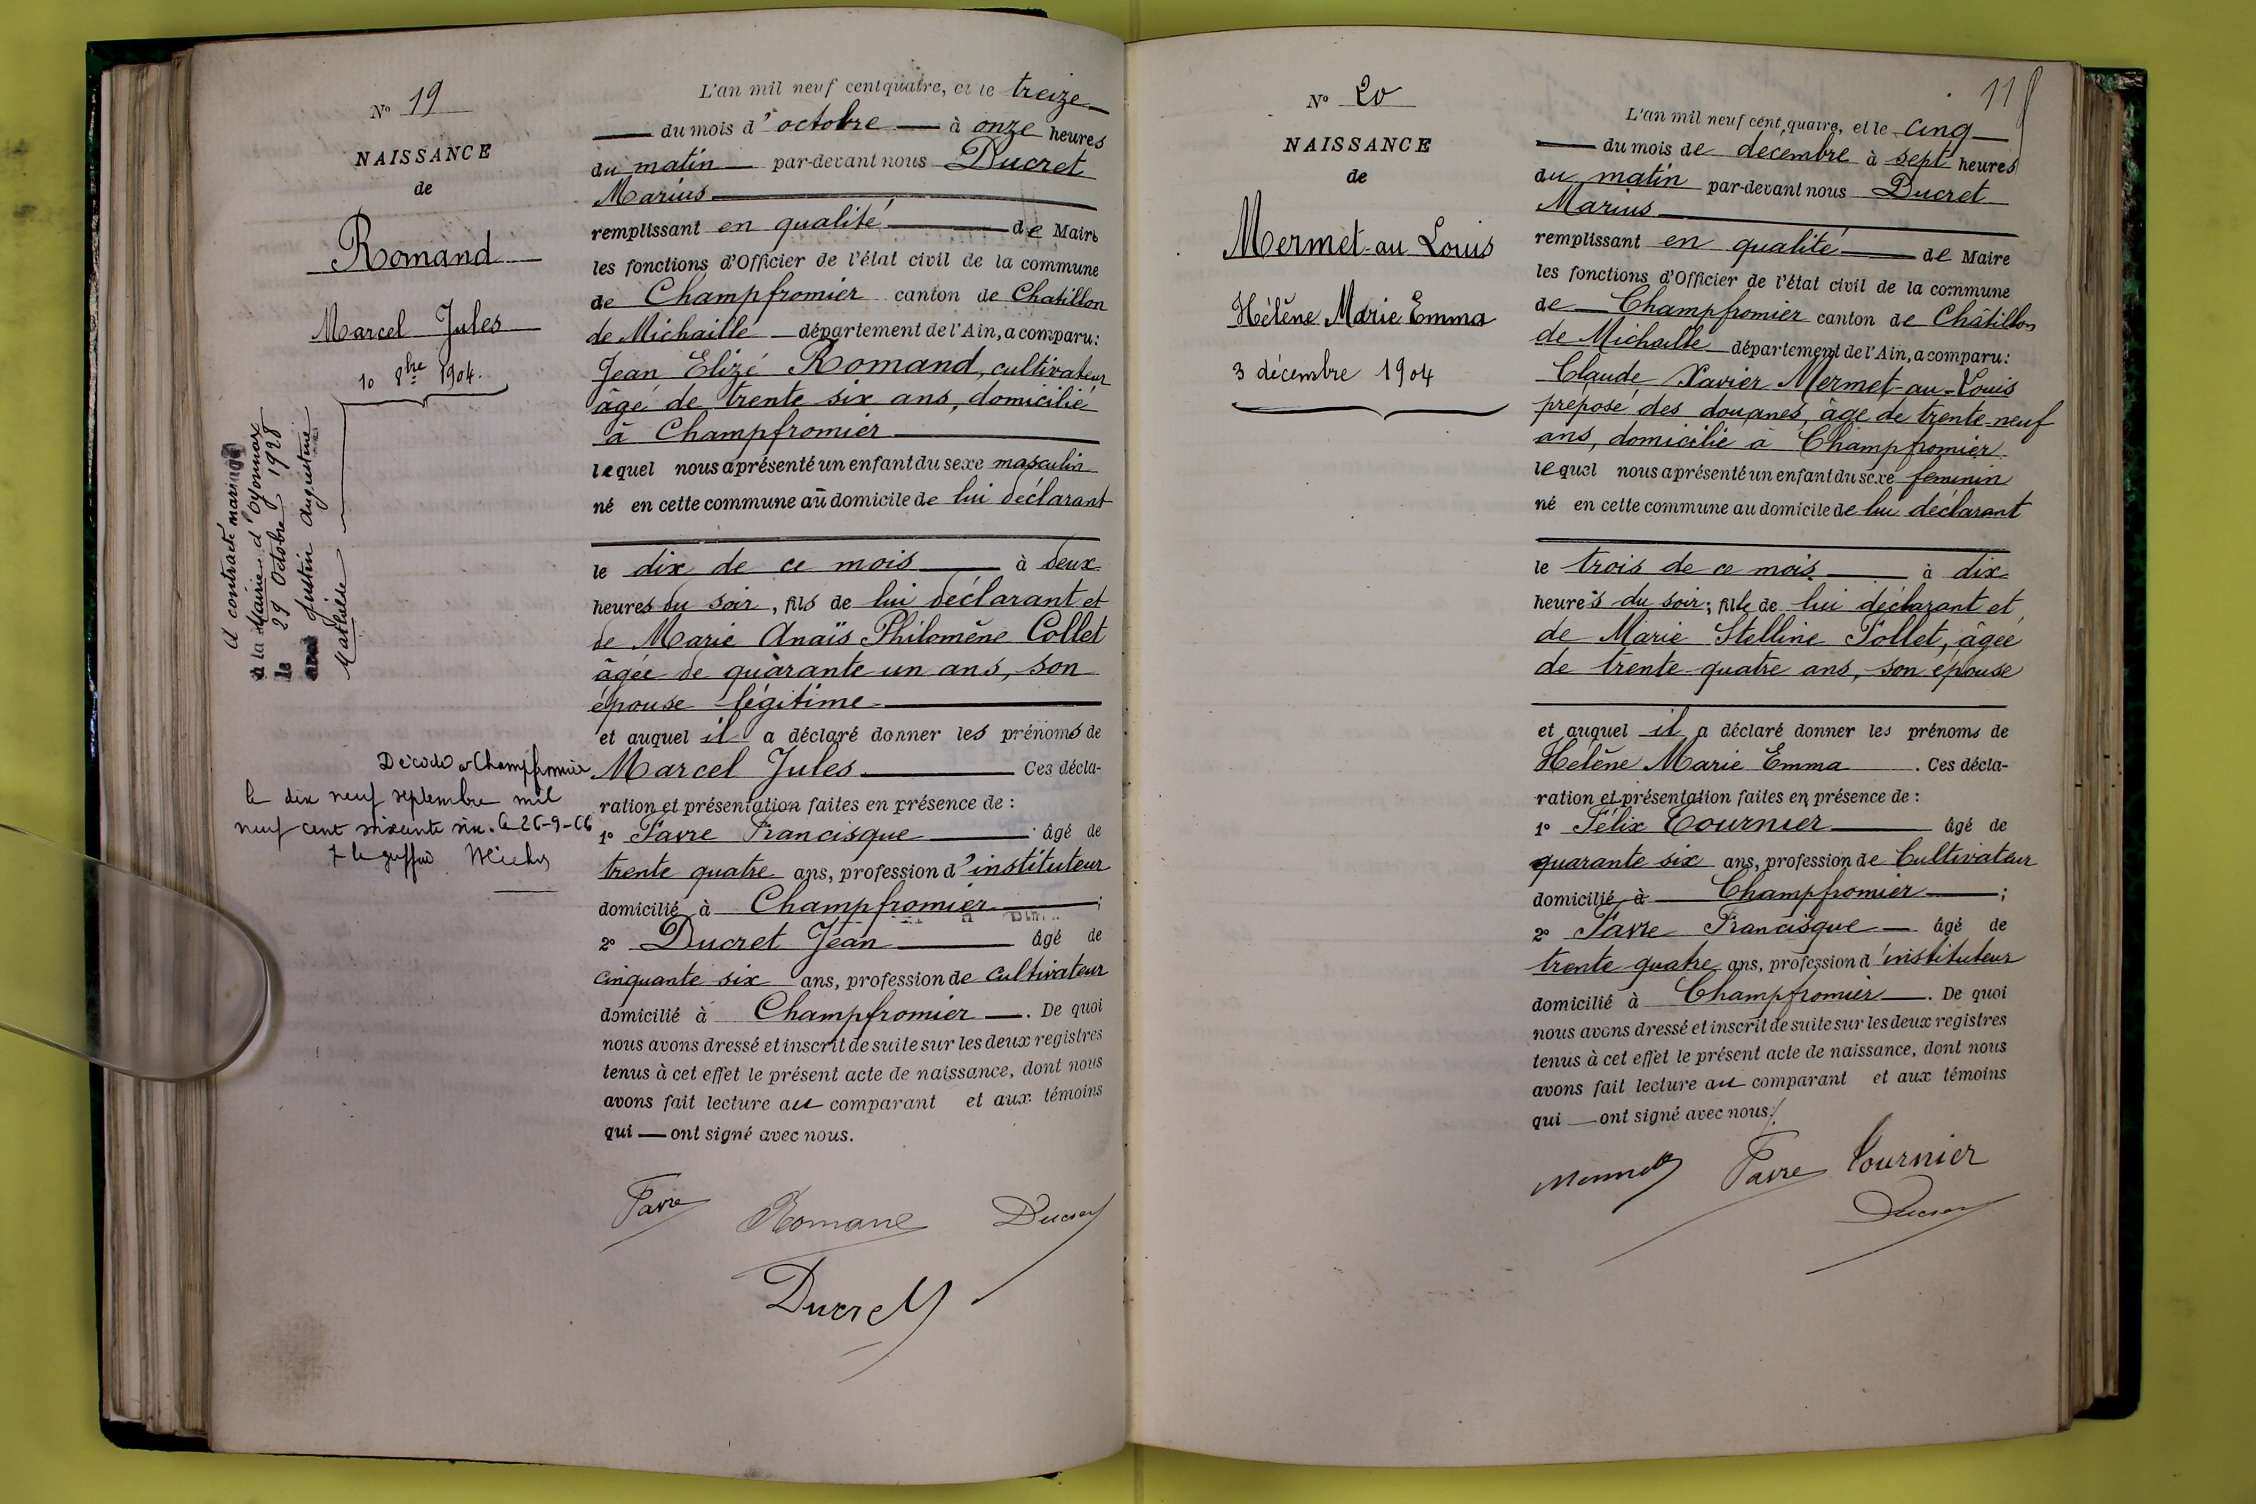 N° 19
NAISSANCE
de
Romand
Marcel Jules
10 8bre 1904.
a contracté mariage
à la Mairie d'Oyonnax
le 29 Octobre 1928
avec Justin Augustine
Mathilde
Décédé à Champfromier
le dix neuf septembre mil
neuf cent soixante six. le 26-9-66
L'an mil neuf cent quatre, et le treize
du mois d'octobre à onze heures
du matin par-devant nous Ducret
Marius
remplissant en qualité de Maire
les fonctions d'Officier de l'état civil de la commune
de Champfromier canton de Chatillon
de Michaille département de l'Ain, a comparu:
Jean Elizé Romand, cultivateur
âgé de trente six ans, domicilié
à Champfromier
lequel nous a présenté un enfant du sexe masculin
né en cette commune au domicile de lui déclarant
le dix de ce mois à deux
heures du soir, fils de lui déclarant et
de Marie Anaïs Philomène Collet
âgée de quarante un ans, son
épouse légitime
et auquel il a déclaré donner les prénoms de
Marcel Jules Ces décla-
ration et présentation faites en présence de :
1° Favre Francisque âgé de
trente quatre ans, profession d'instituteur
domicilié à Champfromier ;
2° Ducret Jean âgé de
cinquante six ans, profession de cultivateur
domicilié à Champfromier. De quoi
nous avons dressé et inscrit de suite sur les deux registres
tenus à cet effet le présent acte de naissance, dont nous
avons fait lecture au comparant et aux témoins
qui ont signé avec nous.
Favre Romand Ducret
Ducret
118
N° 20
NAISSANCE
de
Mermet-au Louis
Hélène Marie Emma
3 décembre 1904
L'an mil neuf cent quatre, et le cinq
du mois de décembre à sept heures
du matin par-devant nous Ducret
Marius
remplissant en qualité de Maire
les fonctions d'Officier de l'état civil de la commune
de Champfromier canton de Châtillon
de Michaille département de l'Ain, a comparu:
Claude Xavier Mermet-au-Louis
préposé des douanes, âgé de trente neuf
ans, domicilié à Champfromier
lequel nous a présenté un enfant du sexe féminin
né en cette commune au domicile de lui déclarant
le trois de ce mois à dix
heures du soir; fille de lui déclarant et
de Marie Stelline Follet, âgée
de trente quatre ans, son épouse
et auquel il a déclaré donner les prénoms de
Hélène Marie Emma . Ces décla-
ration et présentation faites en présence de :
1° Félix Tournier âgé de
quarante six ans, profession de Cultivateur
domicilié à Champfromier ;
2° Favre Francisque âgé de
trente quatre ans, profession d'instituteur
domicilié à Champfromier. De quoi
nous avons dressé et inscrit de suite sur les deux registres
tenus à cet effet le présent acte de naissance, dont nous
avons fait lecture au comparant et aux témoins
qui ont signé avec nous.
Mermet Favre Tournier
Ducret